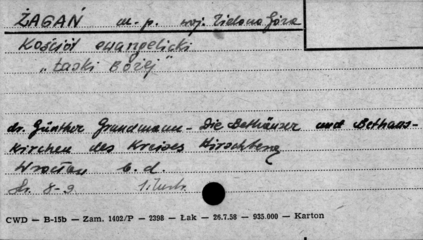 ŻAGAŃ m. p. woj. Zielona Góra
Kościół ewangelicki
„Łaski Bożej"
dr. Günther Grundmann - Die Bethäuser und Bethaus-
kirchen des Kreises Hirschberg
Wrocław b. d.
str. 8-9 1 ilustr.
CWD — B-15b — Zam. 1402/P — 2398 — Łak — 26.7.58 — 935.000 — Karton